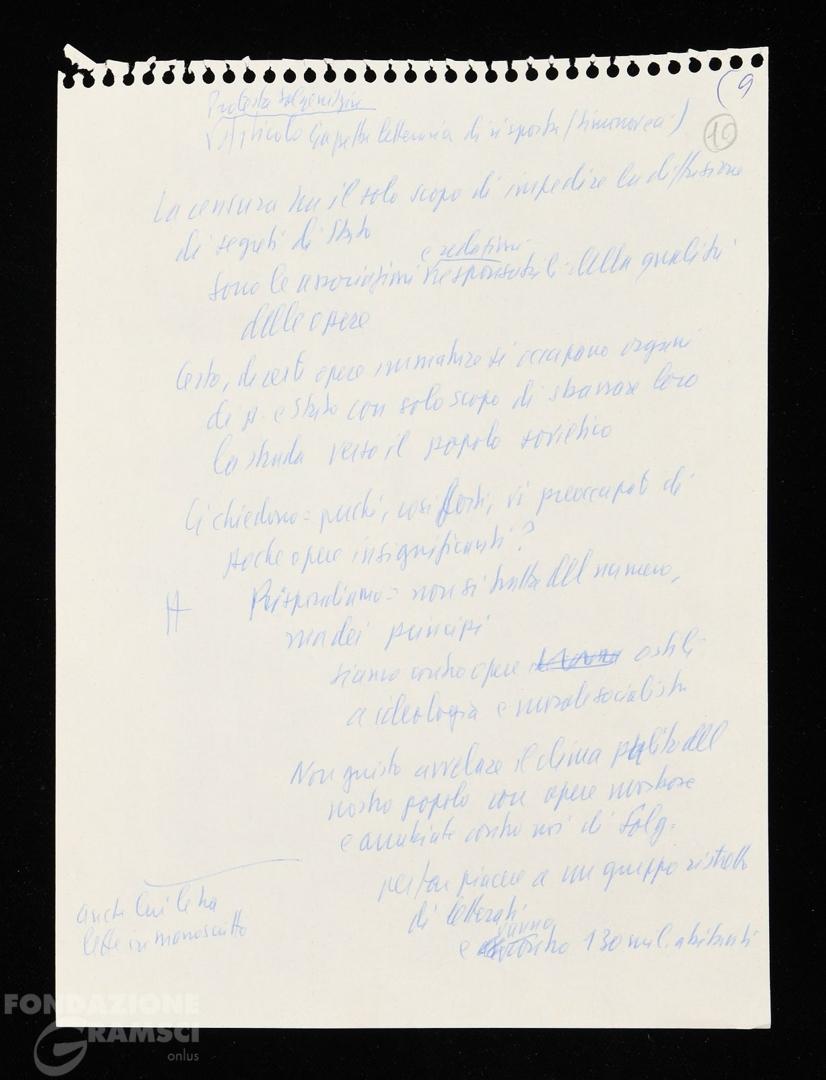 (9
10
Protesta Solgenitzin
Articolo Gazzetta letteraria di risposta (Simonov e a.)
La censura ha il solo scopo di impedire la diffusione
di segreti di Stato
e redazioni
sono le associazioni responsabili della qualità
delle opere
Certo, di certe opere immature si occupano organi
di p. e Stato con solo scopo di sbarrare loro
la strada verso il popolo sovietico
Ci chiedono = perché, così forti, vi preoccupate di
poche opere insignificanti?
H Rispondiamo = non si tratta del numero,
ma dei principi
siamo contro opere ostili
a ideologia e morale socialista
Non giusto avvelenare il clima del
nostro popolo con opere morbose
e contro noi di Solg.
per far piacere a un gruppo ristretto
di letterati
vanno
e contro 130 mil. abitanti
anche lui le ha
lette in manoscritto
FONDAZIONE
GRAMSCI
onlus